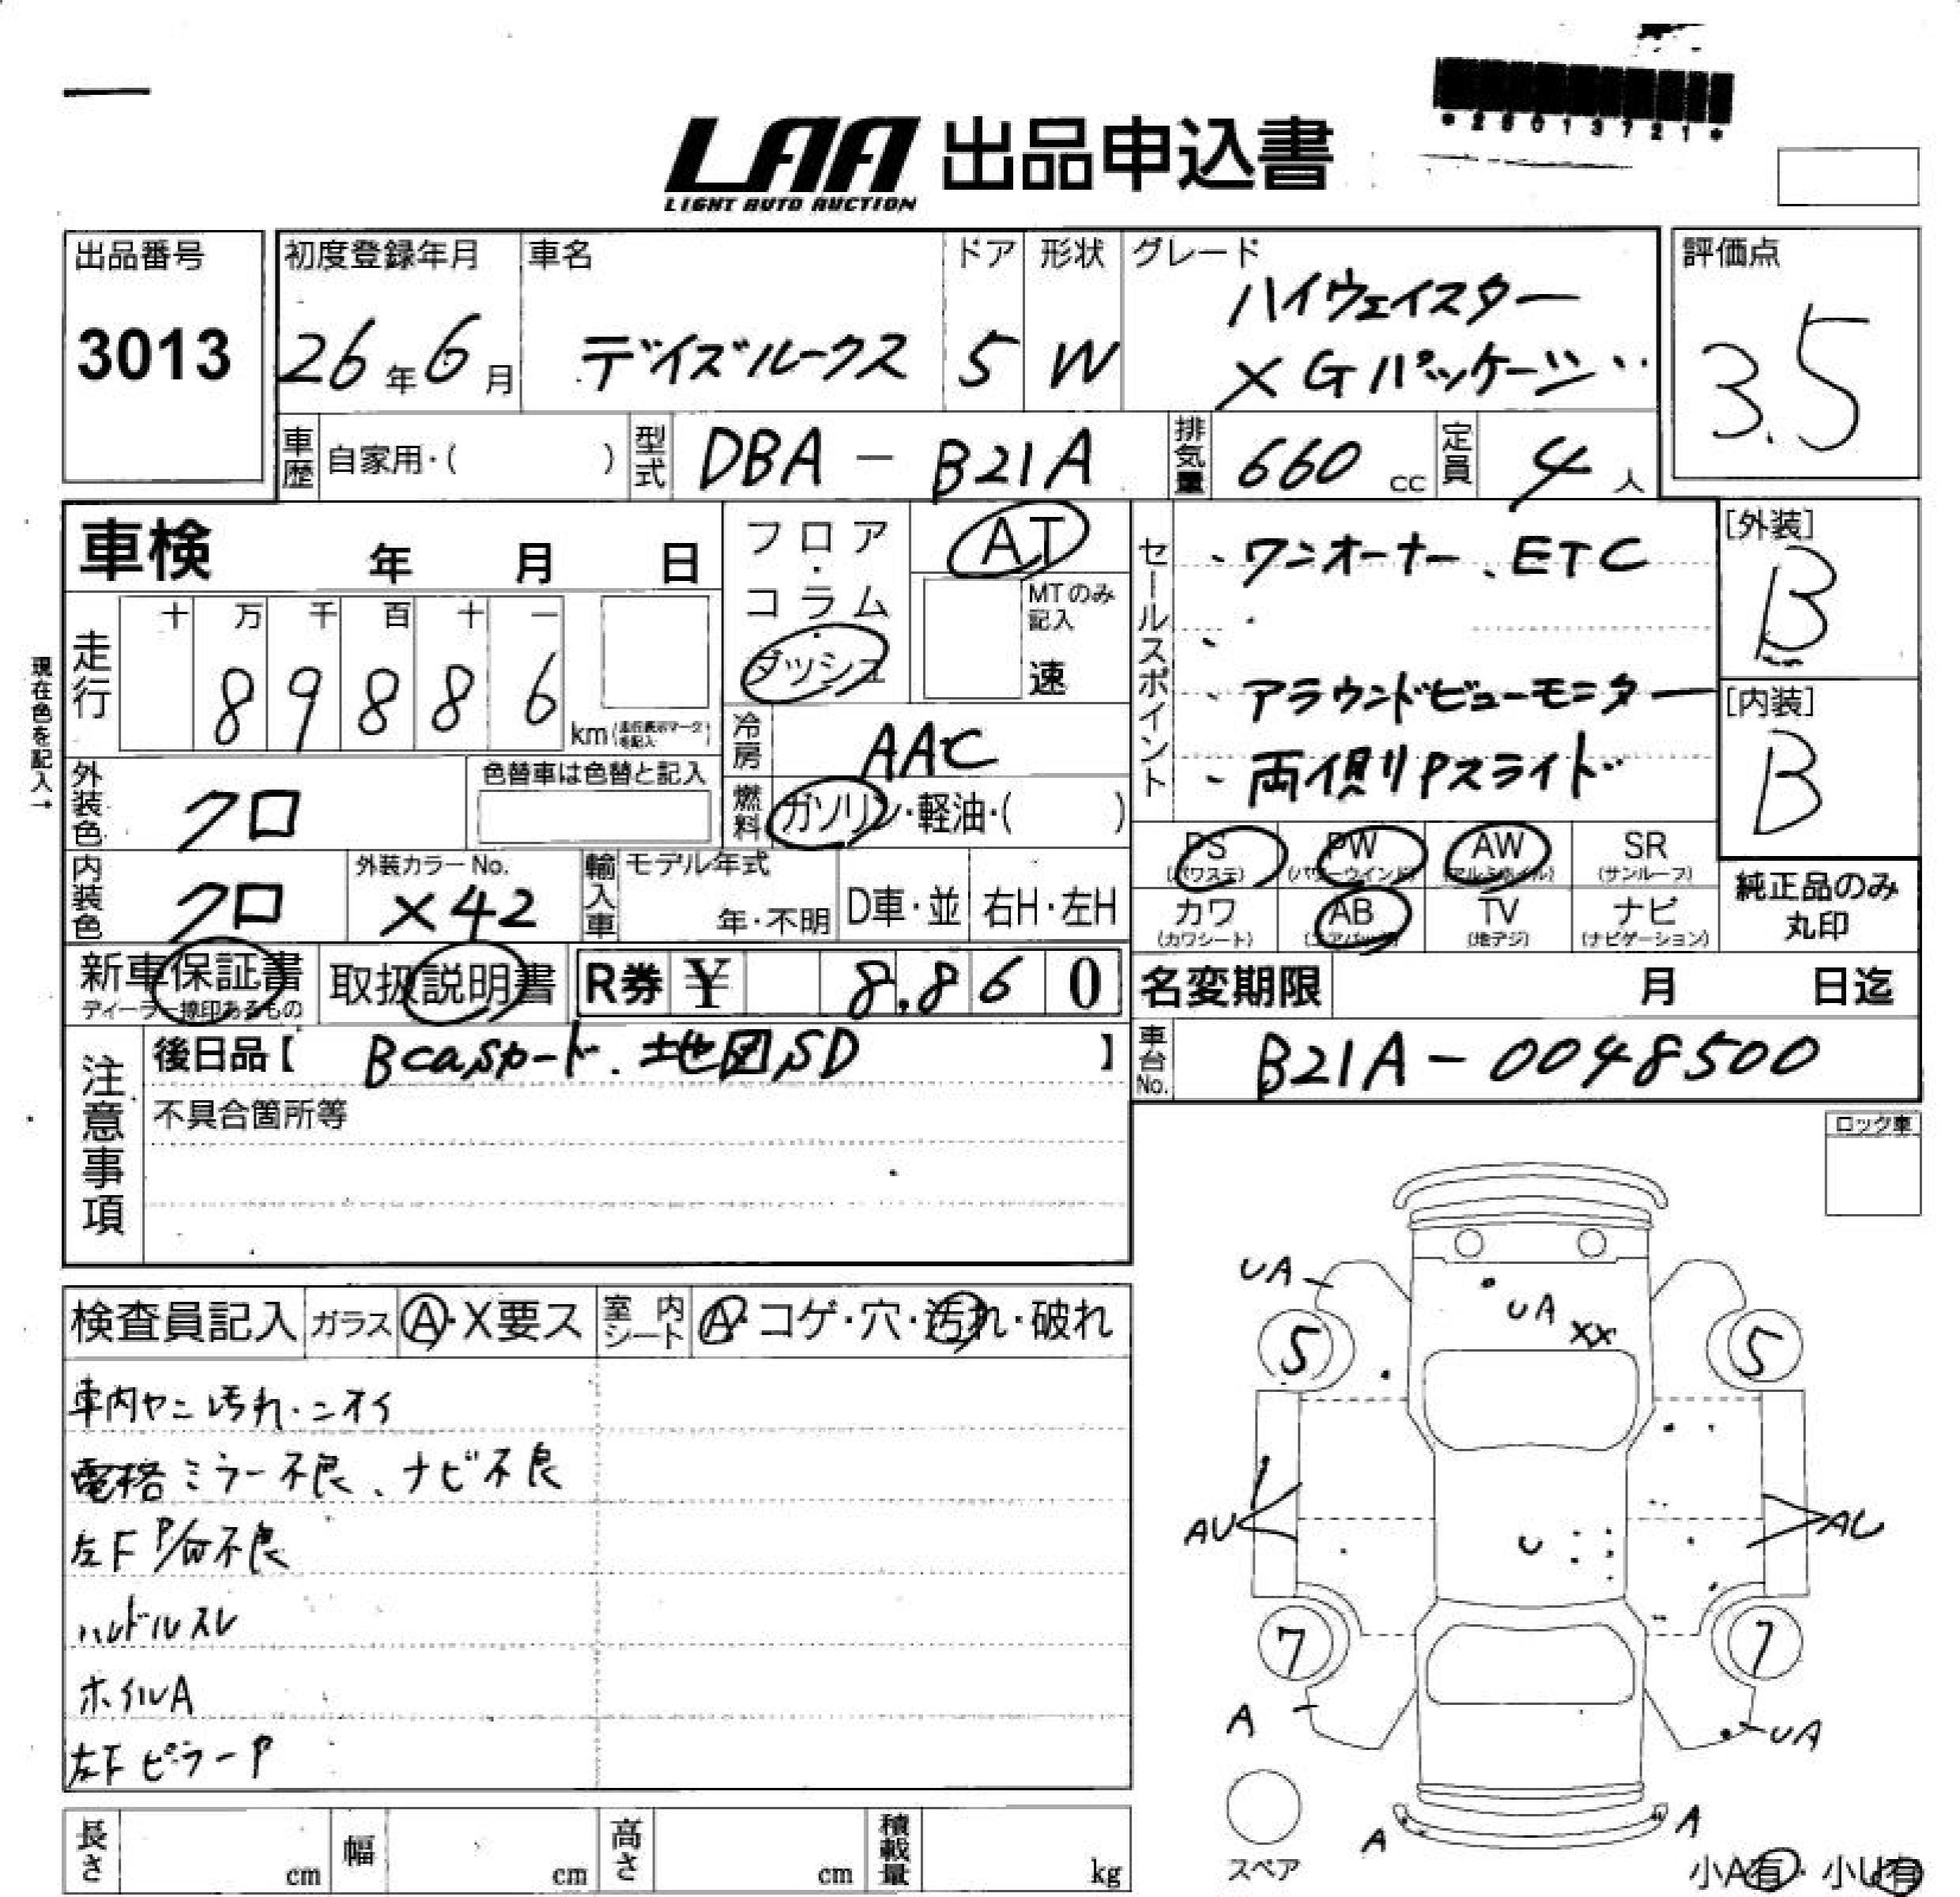 *25013721*
LAA 出品申込書
LIGHT AUTO AUCTION
出品番号 初度登録年月 車名 ドア 形状 グレード 評価点
3013 26年6月 デイズルークス 5 W ハイウェイスター
X Gパッケージ 3.5
車歴 自家用・( ) 型式 DBA - B21A 排気量 660 cc 定員 4 人
車検 年 月 日
フロア・コラム・ダッシュ AT
MTのみ記入 速
セールスポイント ・ワンオーナー、ETC
・アラウンドビューモニター
・両側Pスライド
[外装] B
[内装] B
現在色を記入→
走行 十 万 千 百 十 一
8 9 8 8 6 km (走行表示マークを記入)
冷房 AAC
外装色 クロ 色替車は色替と記入
燃料 ガソリン・軽油・( )
PS (パワステ) PW (パワーウインド) AW (アルミホイル) SR (サンルーフ)
内装色 クロ 外装カラーNo. X42 輸入車 モデル年式 年・不明 D車・並 右H・左H
カワ (カワシート) AB (エアバッグ) TV (地デジ) ナビ (ナビゲーション) 純正品のみ丸印
新車保証書 取扱説明書 R券 ¥ 8,860
ディーラー捺印あるもの
名変期限 月 日迄
注意事項 後日品【 Bcasカード、地図SD 】
車台No. B21A-0048500
不具合箇所等
ロック車
検査員記入 ガラス A・X要ス 室内シート A・コゲ・穴・汚れ・破れ
車内ヤニ汚れ・ニオイ
電格ミラー不良、ナビ不良
左F P/W不良
ハンドルスレ
ホイルA
左FピラーP
UA
UA XX
5 5
AU U AU
7 7
A UA
A A
スペア
小A有・小U有
長さ cm 幅 cm 高さ cm 積載量 kg